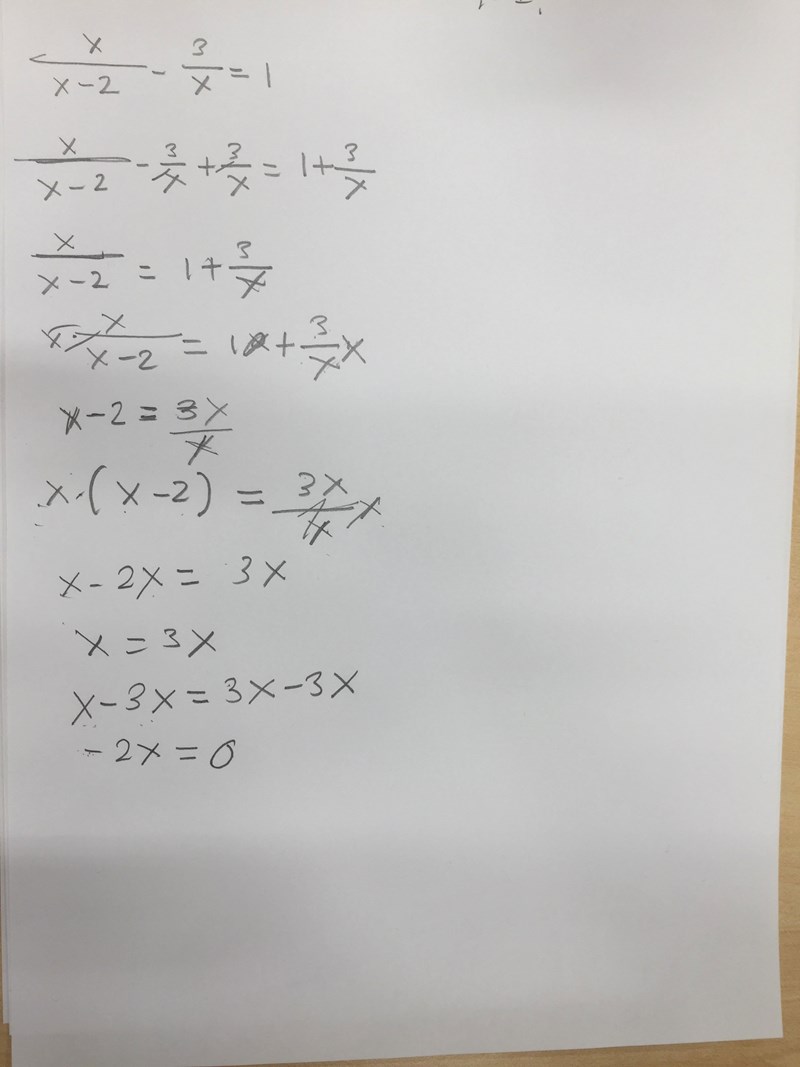 x/(x-2) - 3/x = 1
x/(x-2) - 3/x + 3/x = 1 + 3/x
x/(x-2) = 1 + 3/x
x · x/(x-2) = 1x + 3/x x
x - 2 = 3x/x
x · (x - 2) = 3x/x x
x - 2x = 3x
x = 3x
x - 3x = 3x - 3x
- 2x = 0